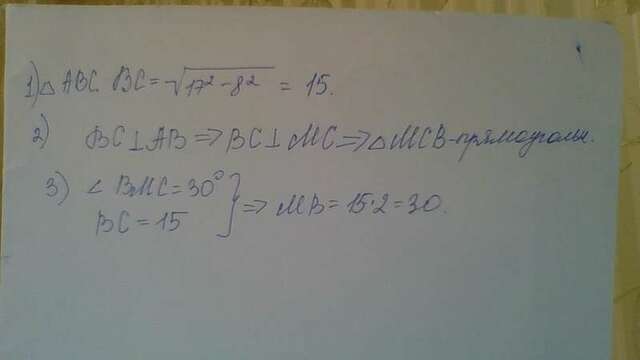 1) △ ABC. BC = √17² - 8² = 15.
2) BC ⊥ AB => BC ⊥ MC => △ MCB - прямоугольн.
3) ∠ BMC = 30° } => MB = 15·2 = 30.
BC = 15